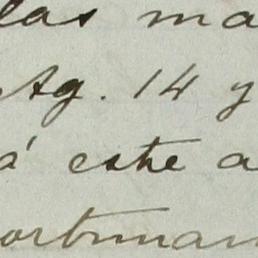 las ma
Ag. 14 y
á este a
ortunam